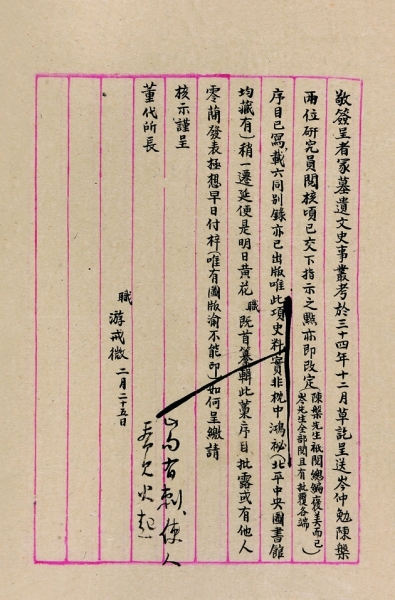 敬簽呈者冢墓遺文史事叢考於三十四年十二月草訖呈送岑仲勉陳槃
兩位研究員閱核頃已交下指示之點亦即改定(陳槃先生祇閱總編褒美而已岑先生全部閱且有批覆各端)
序目已寫載六同別錄亦已出版唯此項史料實非枕中鴻祕(北平中央圖書館
均藏有)稍一遷延便是明日黃花職既首纂輯此藁序目批露或有他人
零簡發表極想早日付梓(唯有圖版渝不能印)如何呈繳請
核示謹呈
董代所長
職 游戒微 二月二十五日